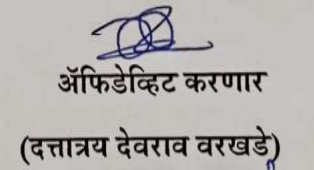 ॲफिडेव्हिट करणार
(दत्तात्रय देवराव वरखडे)